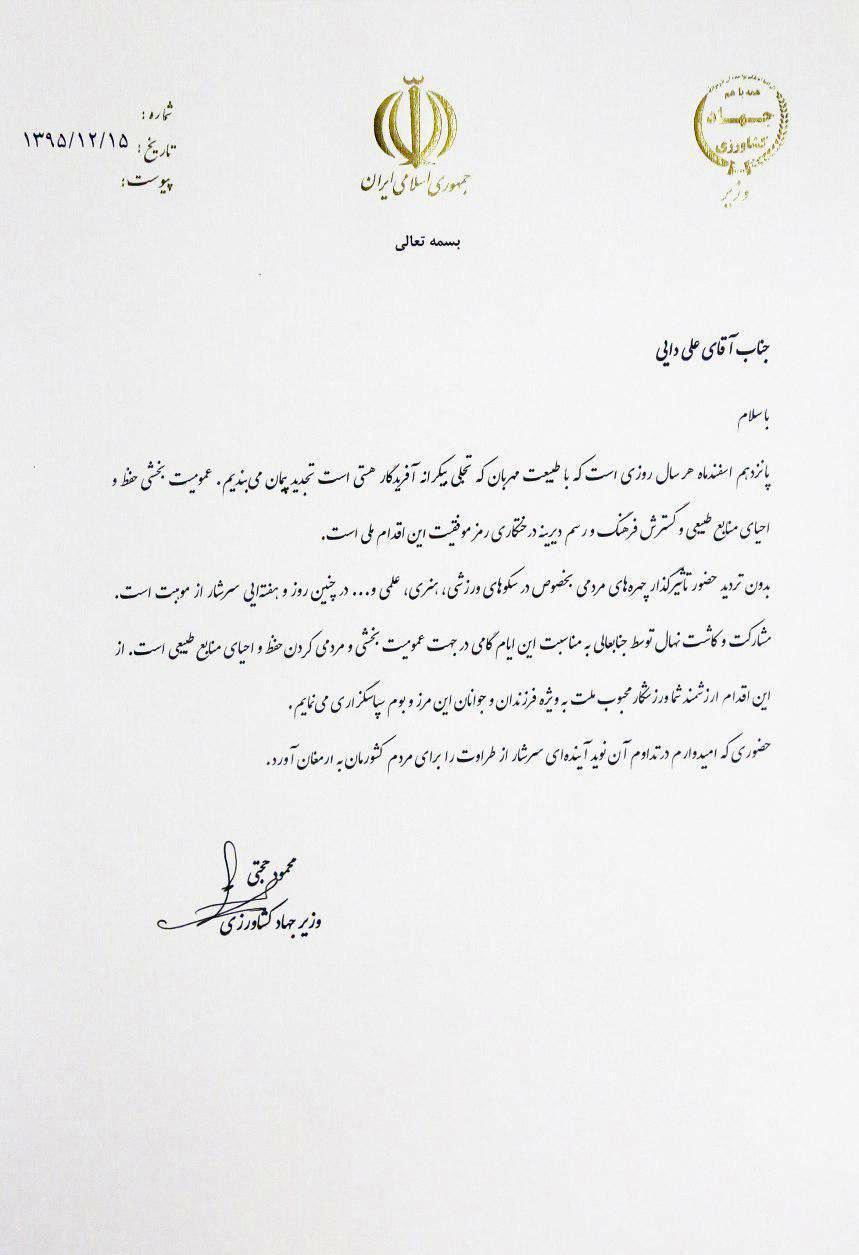 همه با هم
جهاد
کشاورزی
وزیر
جمهوری اسلامی ایران
شماره :
تاریخ : ۱۳۹۵/۱۲/۱۵
پیوست :
بسمه تعالی
جناب آقای علی دایی
با سلام
پانزدهم اسفندماه هر سال روزی است که با طبیعت مهربان که تجلی بیکرانه آفریدگار هستی است تجدید پیمان می‌بندیم. عمومیت بخشی حفظ و
احیای منابع طبیعی و گسترش فرهنگ و رسم دیرینه درختکاری رمز موفقیت این اقدام ملی است.
بدون تردید حضور تأثیرگذار چهره‌های مردمی بخصوص در سکوهای ورزشی، هنری، علمی و... در چنین روز و هفته‌ایی سرشار از موهبت است.
مشارکت و کاشت نهال توسط جنابعالی به مناسبت این ایام گامی در جهت عمومیت بخشی و مردمی کردن حفظ و احیای منابع طبیعی است. از
این اقدام ارزشمند شما ورزشکار محبوب ملت به ویژه فرزندان و جوانان این مرز و بوم سپاسگزاری می‌نمایم.
حضوری که امیدوارم در تداوم آن نوید آینده‌ای سرشار از طراوت را برای مردم کشورمان به ارمغان آورد.
محمود حجتی
وزیر جهاد کشاورزی